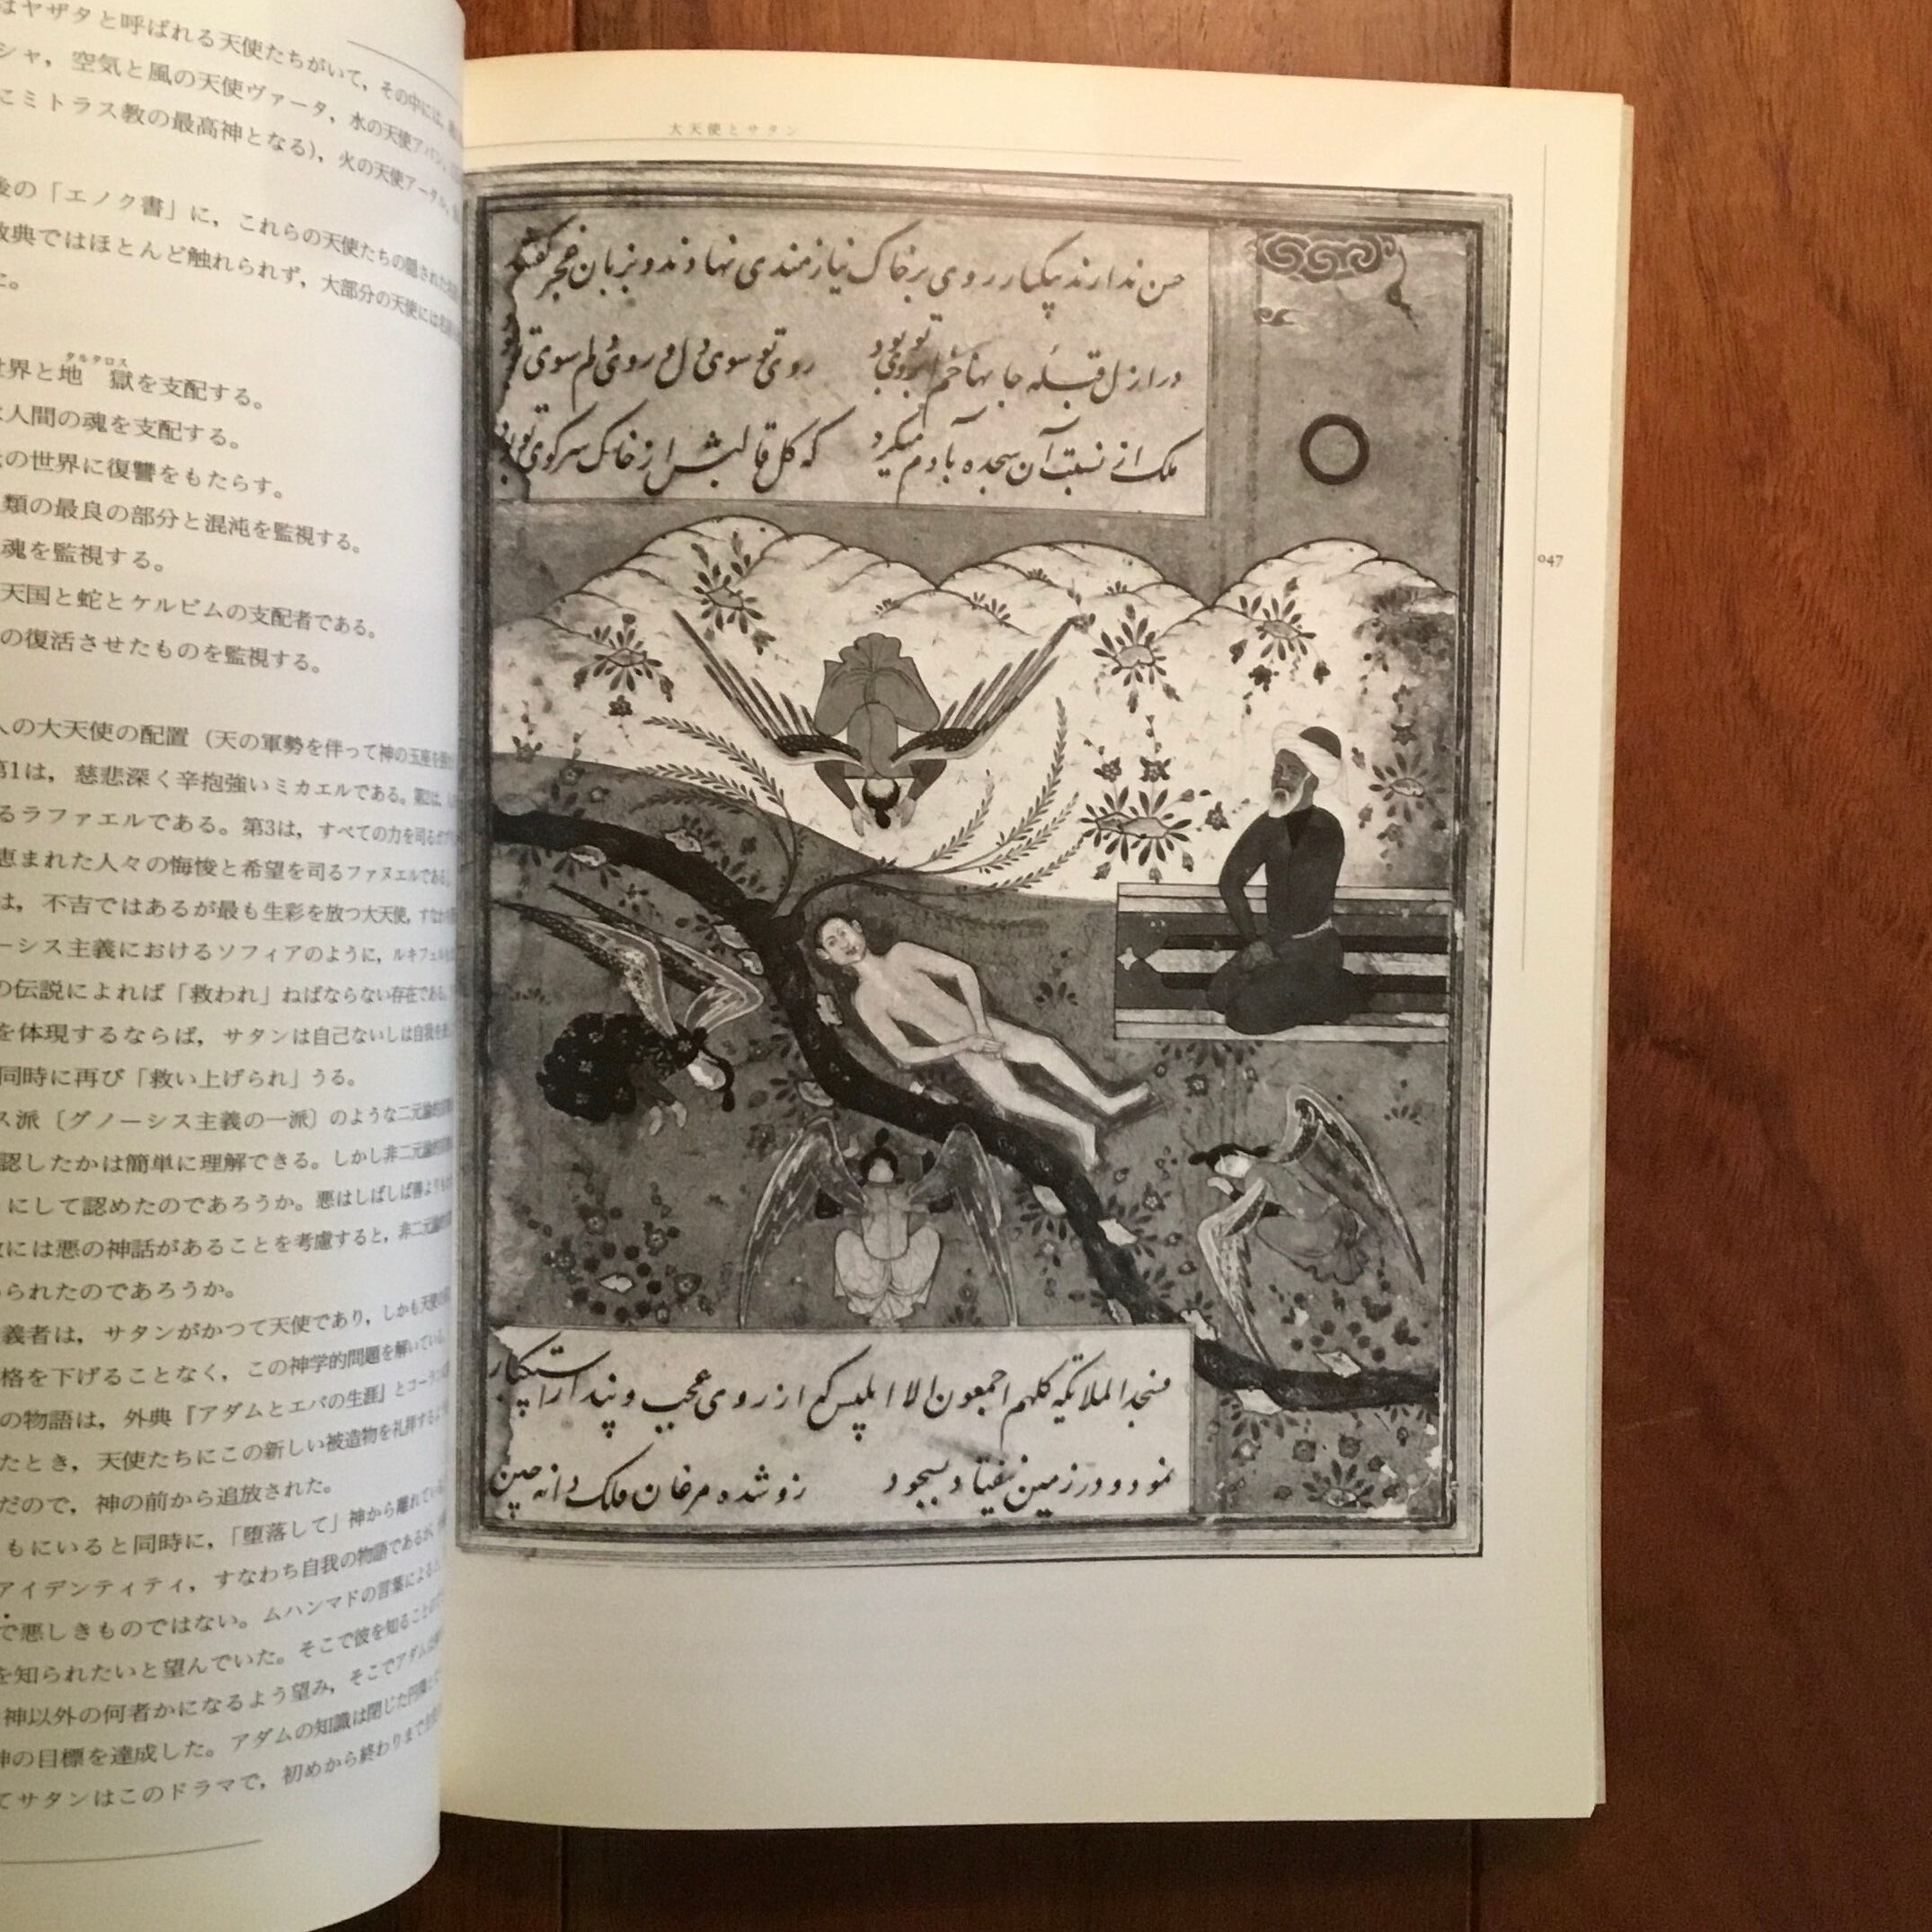 はヤザタと呼ばれる天使たちがいて，その中には，
シャ，空気と風の天使ヴァータ，水の天使アパン，
にミトラス教の最高神となる），火の天使アータル，
後の「エノク書」に，これらの天使たちの隠された
教典ではほとんど触れられず，大部分の天使には名
た。
タルタロス
世界と地獄を支配する。
は人間の魂を支配する。
の世界に復讐をもたらす。
類の最良の部分と混沌を監視する。
魂を監視する。
天国と蛇とケルビムの支配者である。
の復活させたものを監視する。
人の大天使の配置（天の軍勢を伴って神の玉座を
第1は，慈悲深く辛抱強いミカエルである。第2は，
るラファエルである。第3は，すべての力を司る
恵まれた人々の悔悛と希望を司るファヌエルである。
は，不吉ではあるが最も生彩を放つ大天使，すなわち
ーシス主義におけるソフィアのように，ルキフェル
の伝説によれば「救われ」ねばならない存在である。
を体現するならば，サタンは自己ないしは自我を
同時に再び「救い上げられ」うる。
ス派〔グノーシス主義の一派〕のような二元論
認したかは簡単に理解できる。しかし非二元論
にして認めたのであろうか。悪はしばしば善より
には悪の神話があることを考慮すると，非二元論
られたのであろうか。
義者は，サタンがかつて天使であり，しかも天使の
格を下げることなく，この神学的問題を解いている。
の物語は，外典『アダムとエバの生涯』とコーラン
たとき，天使たちにこの新しい被造物を礼拝するよう
だので，神の前から追放された。
もにいると同時に，「堕落して」神から離れている。
アイデンティティ，すなわち自我の物語であるが，
で悪しきものではない。ムハンマドの言葉による
を知られたいと望んでいた。そこで彼を知ること
神以外の何者かになるよう望み，そこでアダム
神の目標を達成した。アダムの知識は閉じた円環
てサタンはこのドラマで，初めから終わりまで
大天使とサタン
حن ندارند یکبار روی بر خاک نیازمندی نهادند و بزبان عجز گفتند
در ازل قبله جانها خم ابروی تو بود
روی تو سوی دل و روی دلم سوی تو بود
ملک از نسبت آن سجده بآدم میکرد
که کل قالبش از خاک سر کوی تو بود
فسجد الملائکه کلهم اجمعون الا ابلیس که از روی عجب و پندار استکبار
نمود و در زمین نیفتاد بسجود
زو شده مرغان فلک دانه چین
047